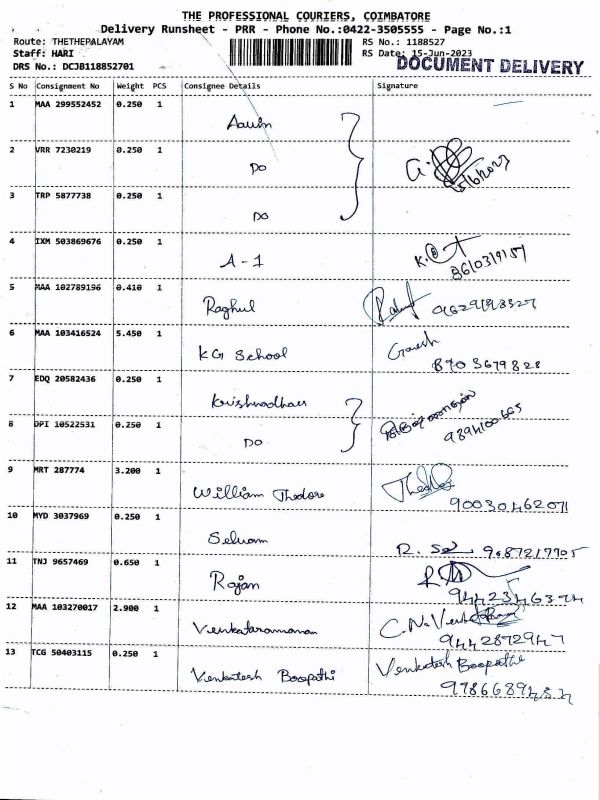 THE PROFESSIONAL COURIERS, COIMBATORE
Delivery Runsheet - PRR - Phone No.:0422-3505555 - Page No.:1
Route: THETHEPALAYAM RS No.: 1188527
Staff: HARI RS Date: 15-Jun-2023
DRS No.: DCJB118852701 DOCUMENT DELIVERY
S No Consignment No Weight PCS Consignee Details Signature
1 MAA 299552452 0.250 1
2 VRR 7230219 0.250 1 DO
3 TRP 5877738 0.250 1 DO
4 IXM 503869676 0.250 1 A-1 8610319151
5 MAA 102789196 0.410 1 Raghul
6 MAA 103416524 5.450 1 KG School Ganesh
8903679828
7 EDQ 20582436 0.250 1
8 DPI 10522531 0.250 1 DO
9 MRT 287774 3.200 1 William Thedore
9003046 2071
10 MYD 3037969 0.250 1 Selvam
11 TNJ 9657469 0.650 1 Rajan
12 MAA 103270017 2.900 1 Venkataramanan
13 TCG 50403115 0.250 1 Venkatesh Boopathi Venkatesh Boopathi